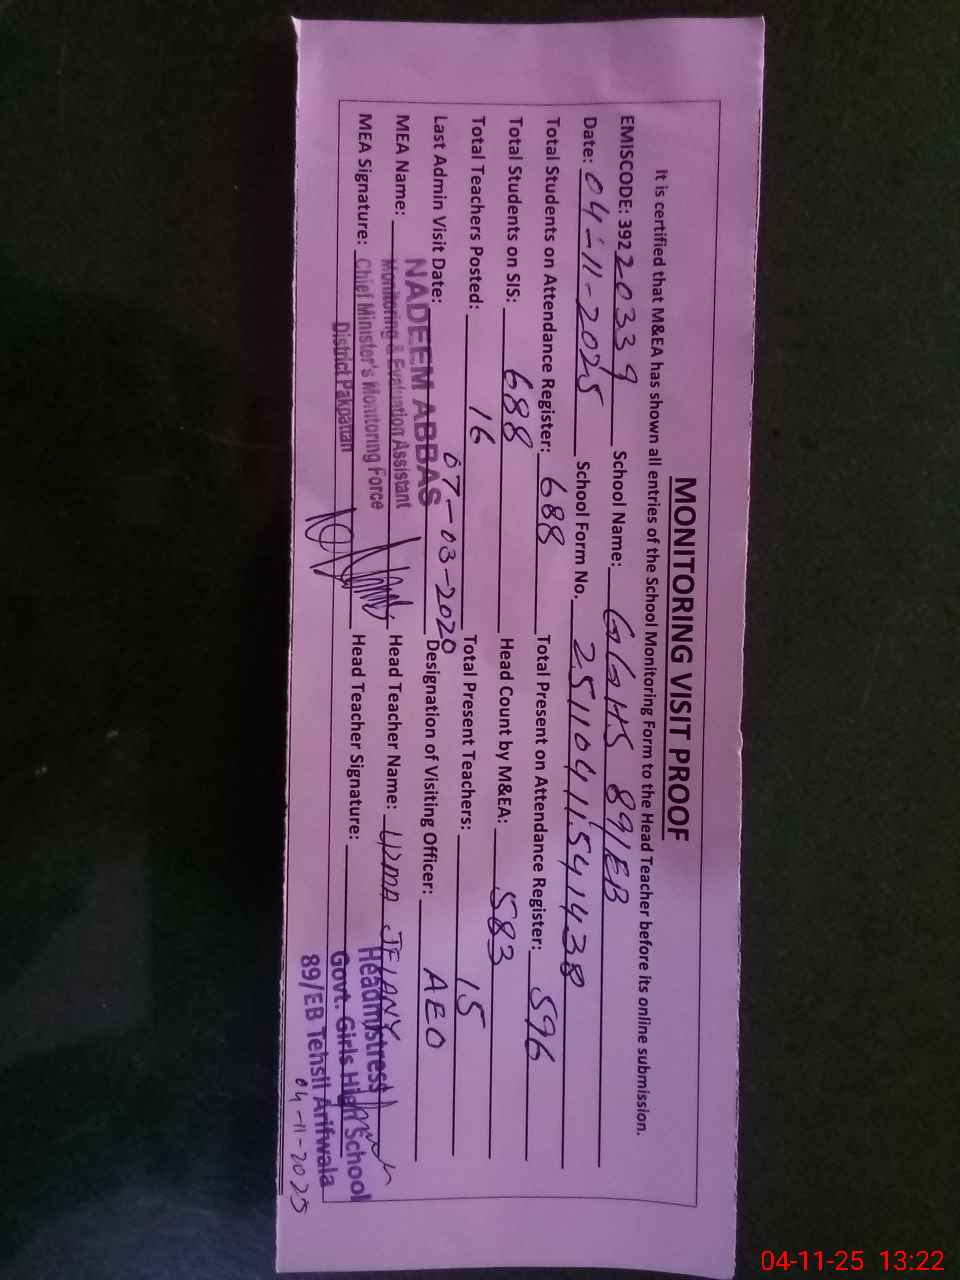 MONITORING VISIT PROOF
It is certified that M&EA has shown all entries of the School Monitoring Form to the Head Teacher before its online submission.
EMISCODE: 39220339 School Name: GGHS 89/EB
Date: 04-11-2025 School Form No. 25110411541438
Total Students on Attendance Register: 688 Total Present on Attendance Register: 596
Total Students on SIS: 688 Head Count by M&EA: 583
Total Teachers Posted: 16 Total Present Teachers: 15
Last Admin Visit Date: 07-03-2020 Designation of Visiting Officer: AEO
MEA Name: NADEEM ABBAS Head Teacher Name: UZMA
Monitoring & Evaluation Assistant
MEA Signature: Chief Minister's Monitoring Force Head Teacher Signature:
District Pakpattan
Headmistress
Govt. Girls High School
89/EB Tehsil Arifwala
04-11-2025
04-11-25 13:22